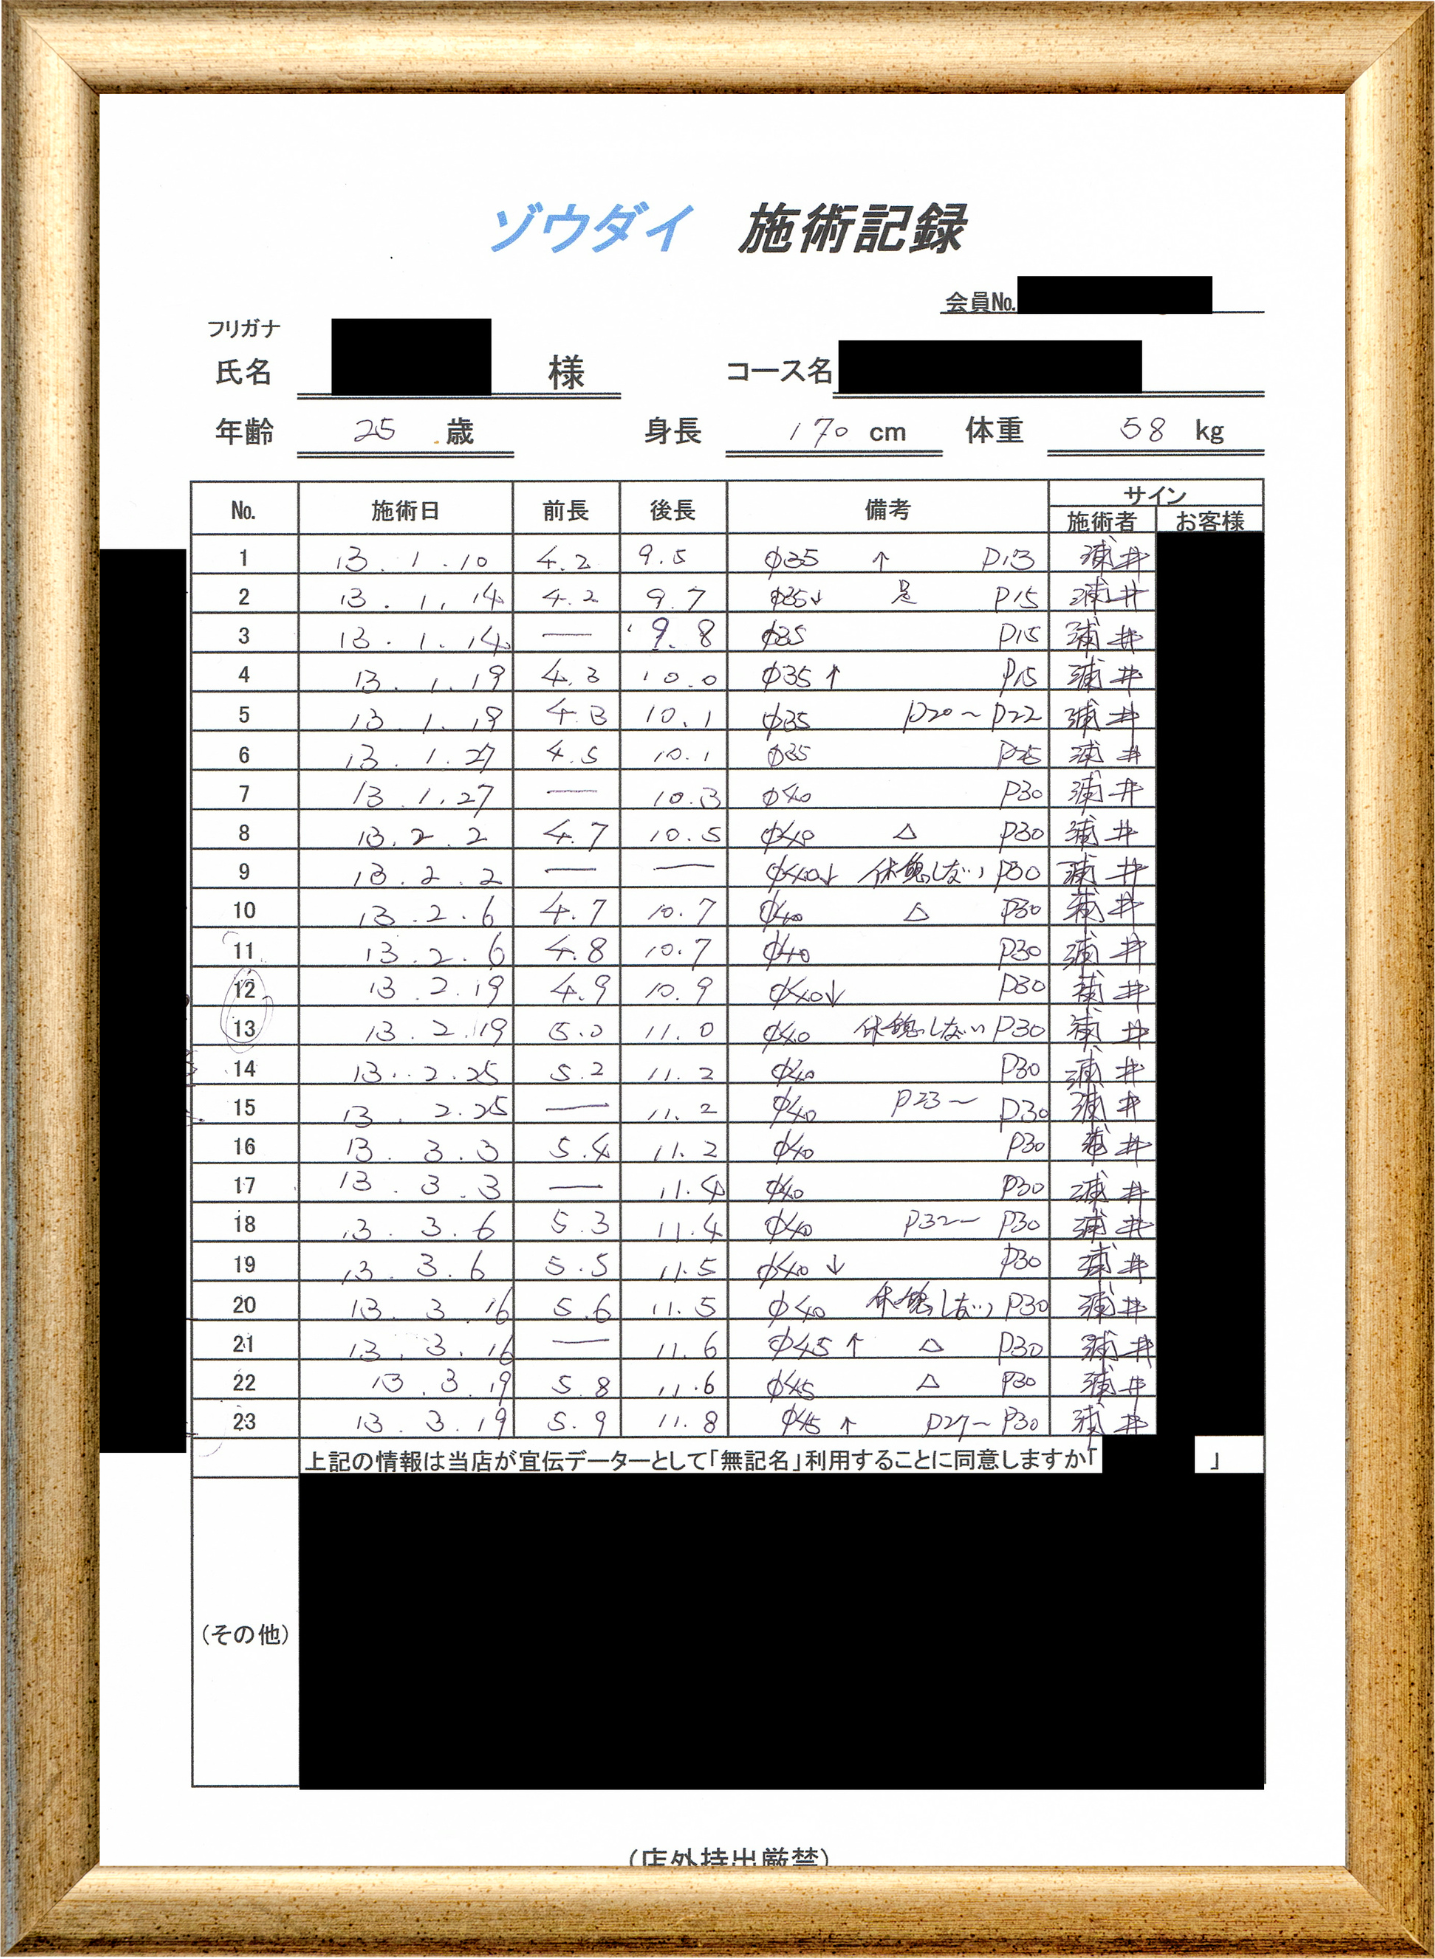 ゾウダイ 施術記録
会員No.
フリガナ
氏名 様 コース名
年齢 25 歳 身長 170 cm 体重 58 kg
No. 施術日 前長 後長 備考 サイン
施術者 お客様
1 13.1.10 4.2 9.5 φ35 ↑ P13 浦井
2 13.1.14 4.2 9.7 φ35↓ P15 浦井
3 13.1.14 — 9.8 φ35 P15 浦井
4 13.1.19 4.3 10.0 φ35↑ P15 浦井
5 13.1.19 4.3 10.1 φ35 P20~P22 浦井
6 13.1.27 4.5 10.1 φ35 P25 浦井
7 13.1.27 — 10.3 φ40 P30 浦井
8 13.2.2 4.7 10.5 φ40 △ P30 浦井
9 13.2.2 — — φ40↓ 休憩しない P30 浦井
10 13.2.6 4.7 10.7 φ40 △ P30 浦井
11 13.2.6 4.8 10.7 φ40 P30 浦井
12 13.2.19 4.9 10.9 φ40↓ P30 浦井
13 13.2.19 5.0 11.0 φ40 休憩しない P30 浦井
14 13.2.25 5.2 11.2 φ40 P30 浦井
15 13.2.25 — 11.2 φ40 P23~ P30 浦井
16 13.3.3 5.4 11.2 φ40 P30 浦井
17 13.3.3 — 11.4 φ40 P30 浦井
18 13.3.6 5.3 11.4 φ40 P32~ P30 浦井
19 13.3.6 5.5 11.5 φ40↓ P30 浦井
20 13.3.16 5.6 11.5 φ40 休憩しない P30 浦井
21 13.3.16 — 11.6 φ45↑ △ P30 浦井
22 13.3.19 5.8 11.6 φ45 △ P30 浦井
23 13.3.19 5.9 11.8 φ45↑ P27~P30 浦井
上記の情報は当店が宣伝データーとして「無記名」利用することに同意しますか「 」
(その他)
(店外持出厳禁)